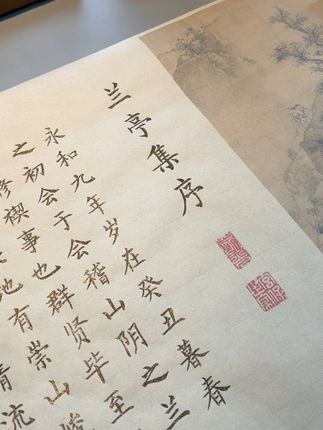 兰亭集序
永和九年岁在癸丑暮春
之初会于会稽山阴之兰
修禊事也群贤毕至
地有崇山峻
清流